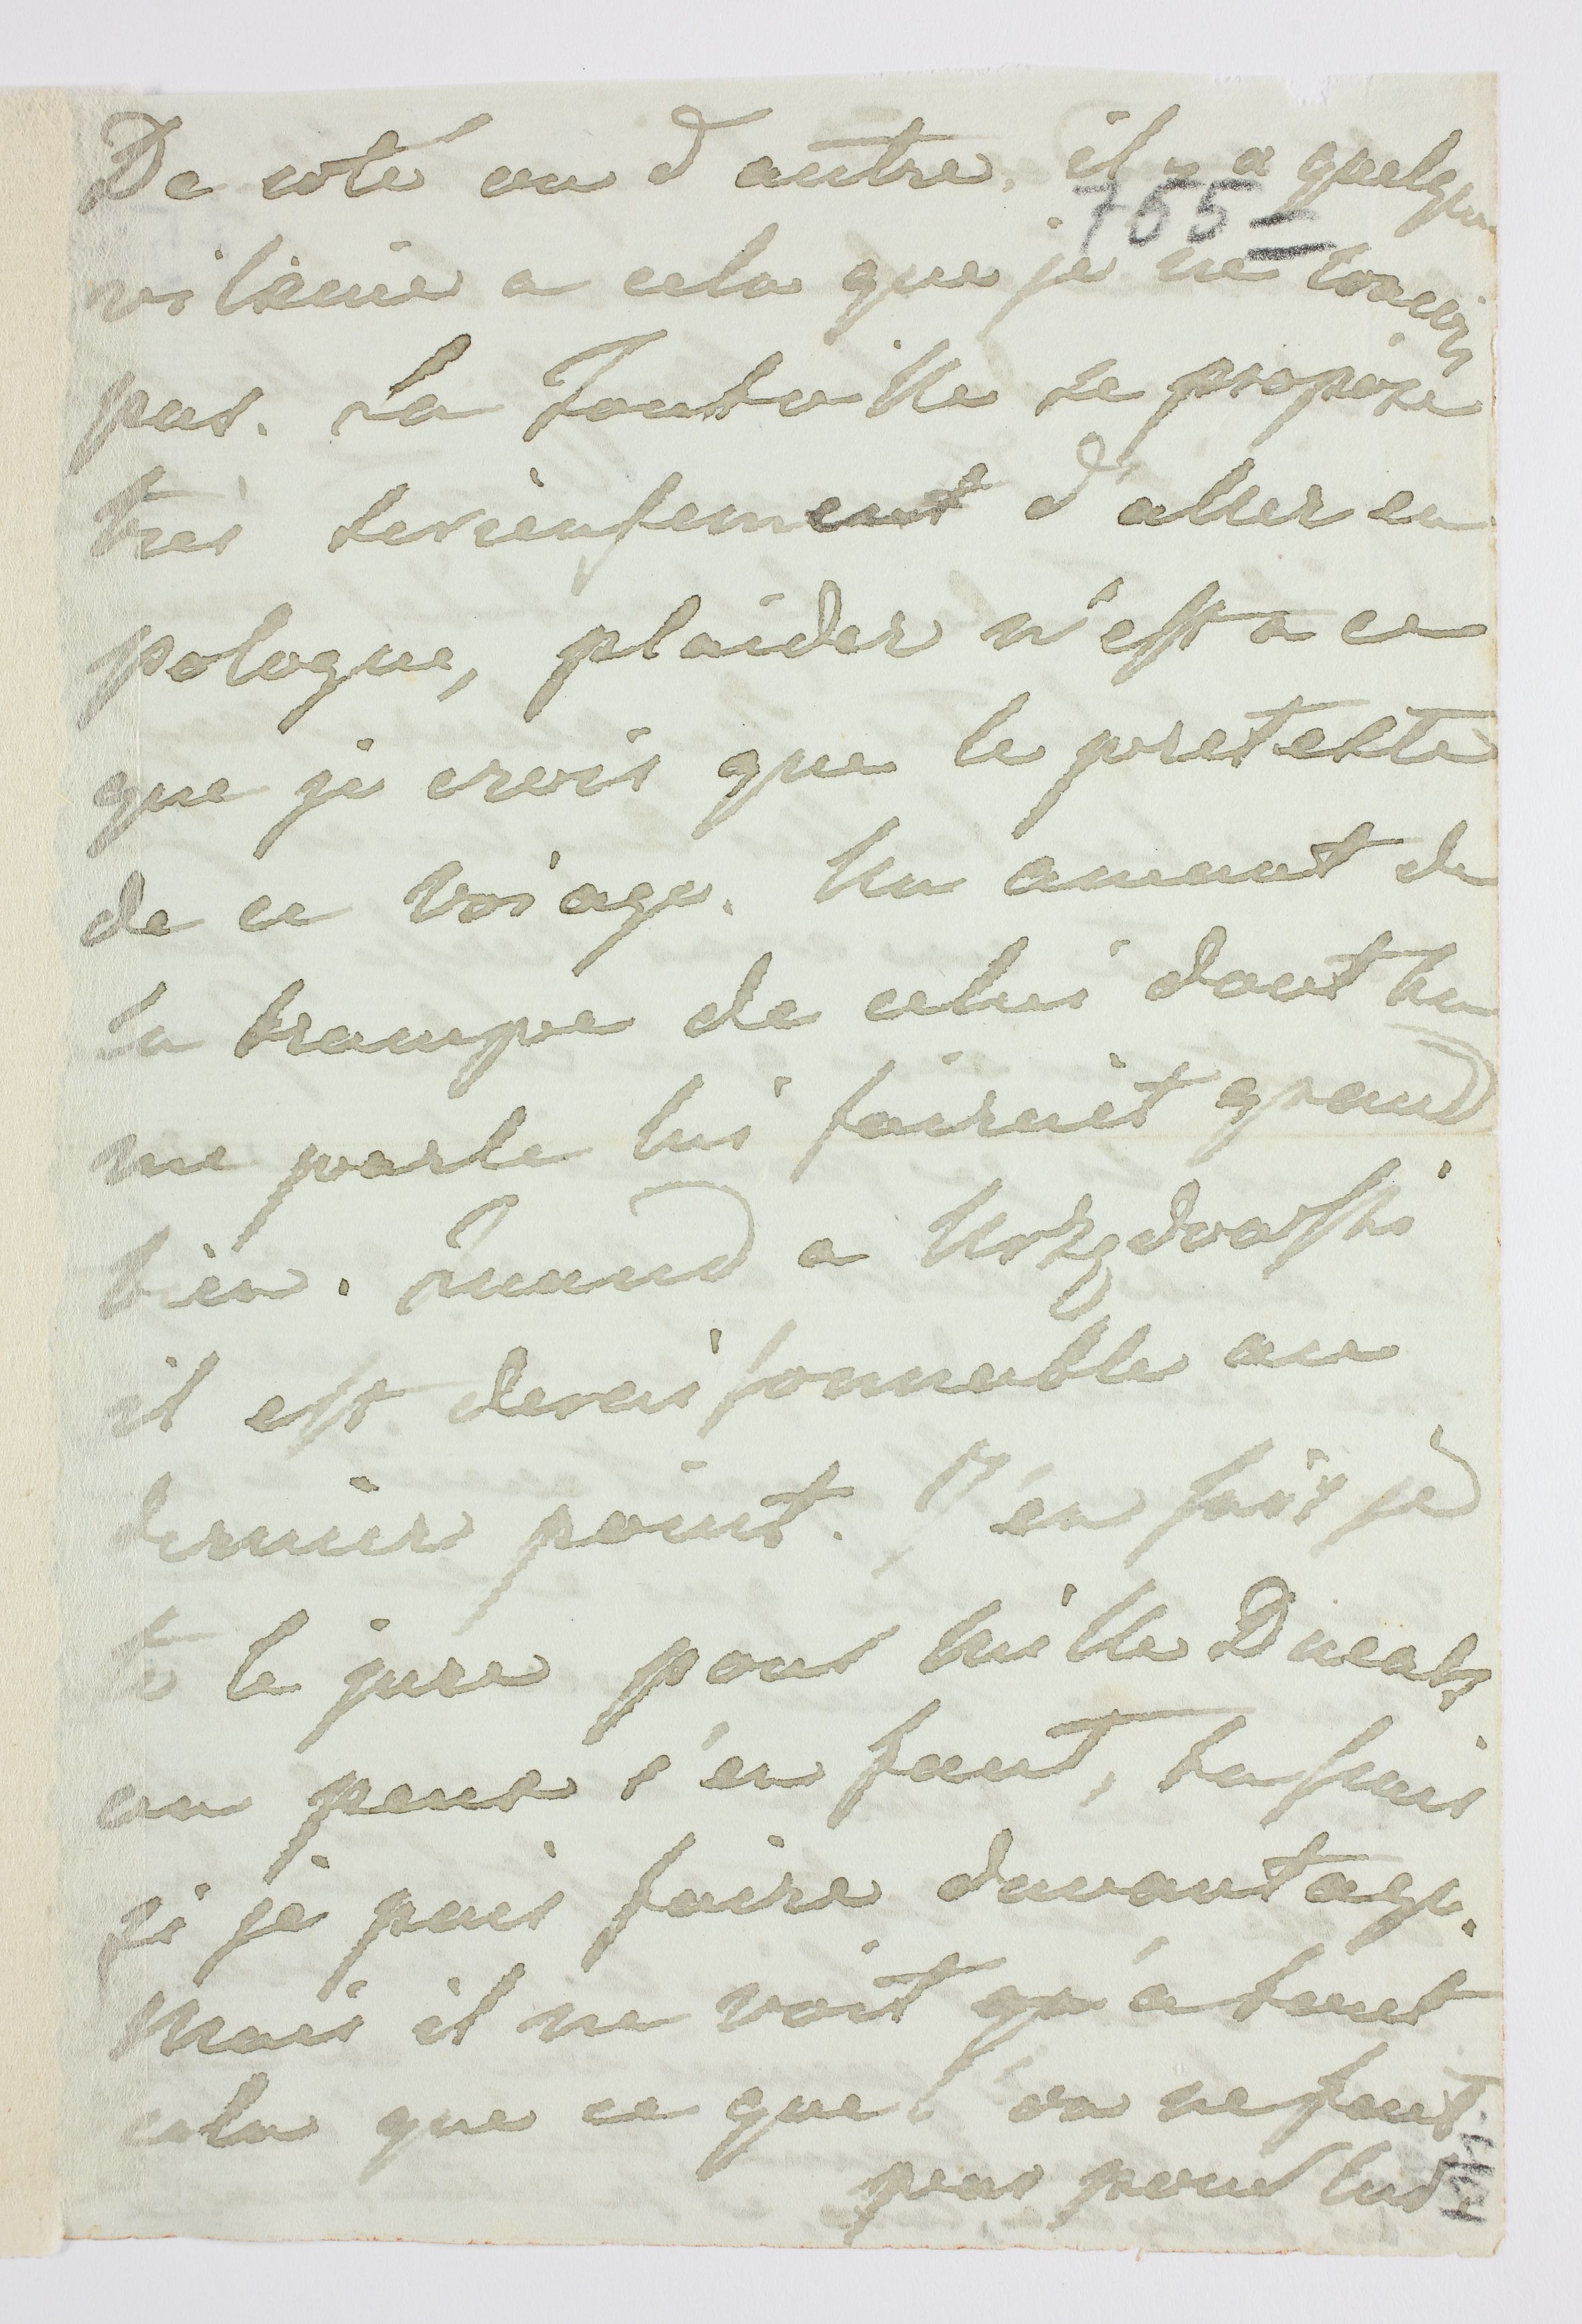 De coté ou d'autre. il y a quelque
755
vilainie a cela que je ne conçois
pas. La Joutville se propose
tres serieusement d'aller en
pologne, plaider n'est a ce
que je crois que le pretexte
de ce voiage. Un amant de
la trampe de celui dont tu
me parle lui fairait grand
bien. Quand a
il est deraisonnable au
dernier point. J'en fais je
te le jure pour mille Ducats
ou peux s'en faut, tu sais
si je puis faire davantage.
Mais il ne voit qu'a tout
cela que ce que l'on ne faut
pas pour lui